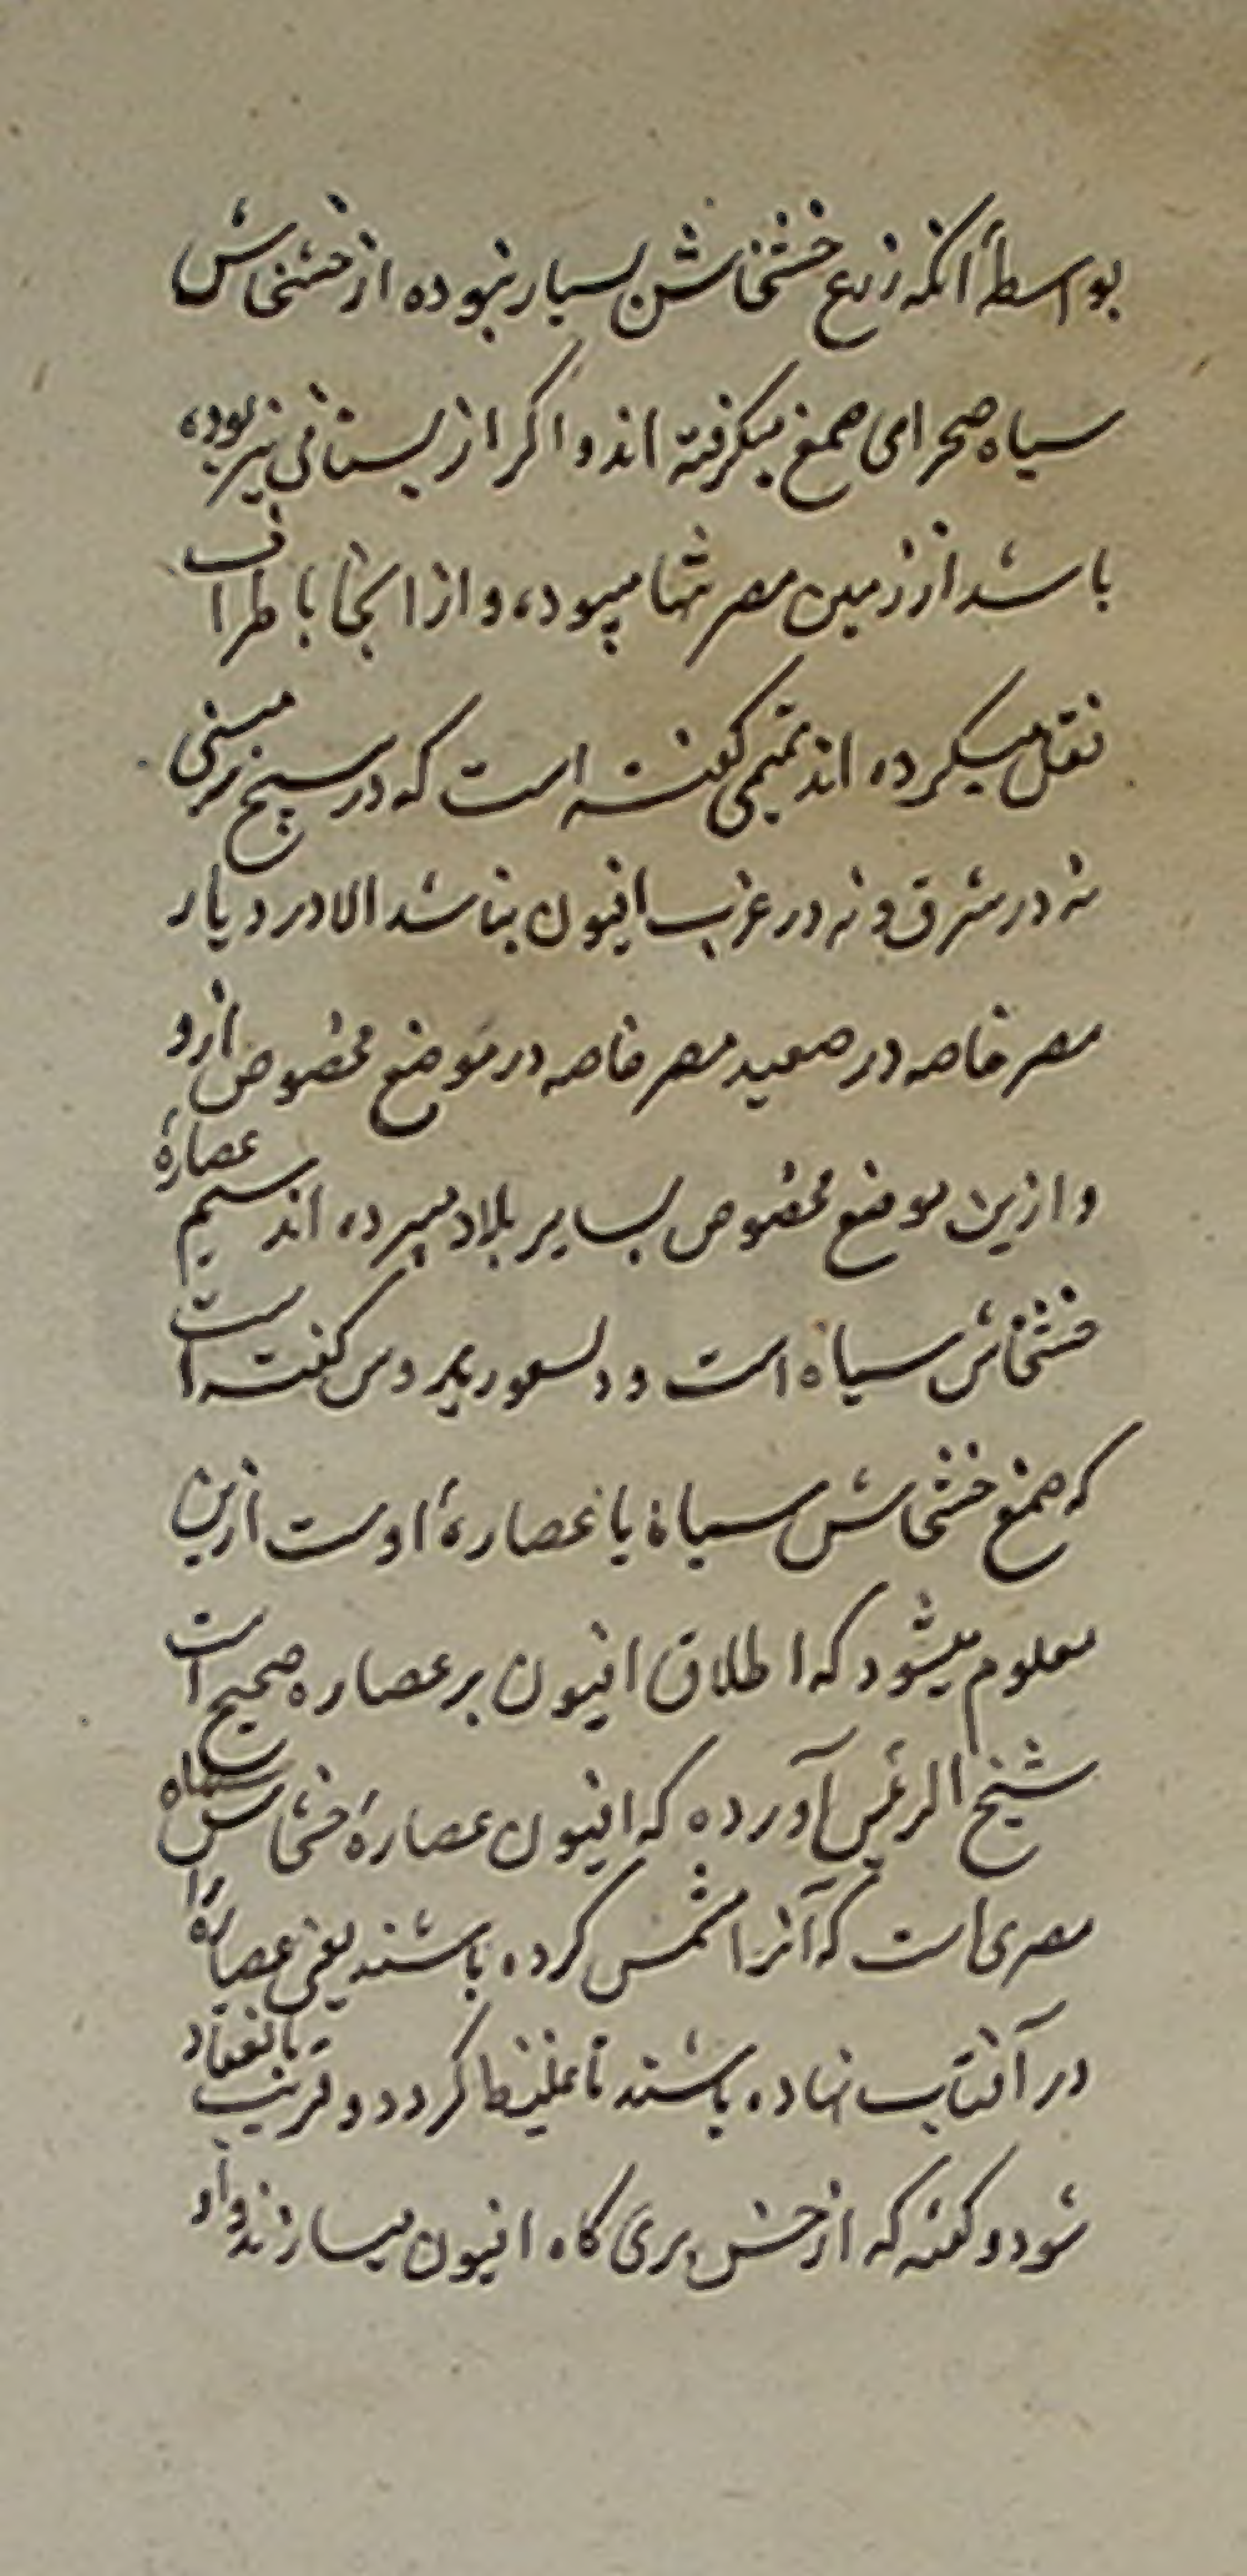 بواسطهٔ انکه زرع خشخاش بسیار نبوده از خشخاش
سیاه صحرای صمغ میکرفته اند و اکر از بستانی نیز بوده
باشد از زمین مصر تنها میبوده و از انجا باطراف
نقل میکرده اند تمیمی کفته است که در هیچ زمینی
نه در شرق و نه در غرب افیون نباشد الا در دیار
مصر خاصه در صعید مصر خاصه در موضع مخصوص ازو
و ازین موضع مخصوص بسایر بلاد میبرده اند عصارهٔ
خشخاش سیاه است و کفته است
که صمغ خشخاش سیاه یا عصارهٔ اوست ازین
معلوم میشود که اطلاق افیون بر عصاره صحیح است
شیخ الرئیس آورده که افیون عصارهٔ خشخاش سیاه
مصری است که آنرا مشمس کرده باشند یعنی عصاره را
در آفتاب نهاده باشند تا غلیظ کردد و قریب بانعقاد
شود و کفته که از خس بری کاه افیون میسازند و او